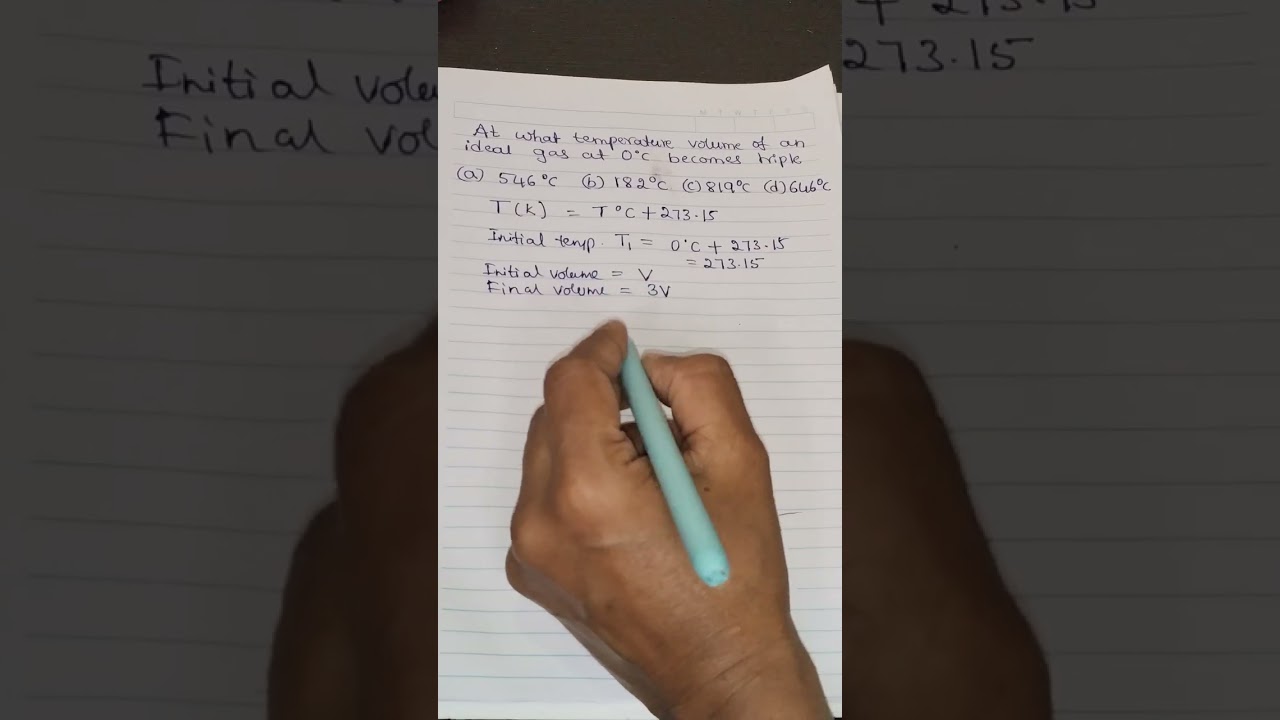 At what temperature volume of an
ideal gas at 0°C becomes triple
(a) 546°C (b) 182°C (c) 819°C (d) 646°C
T(K) = T°C + 273.15
Initial temp. T₁ = 0°C + 273.15
= 273.15
Initial volume = V
Final volume = 3V